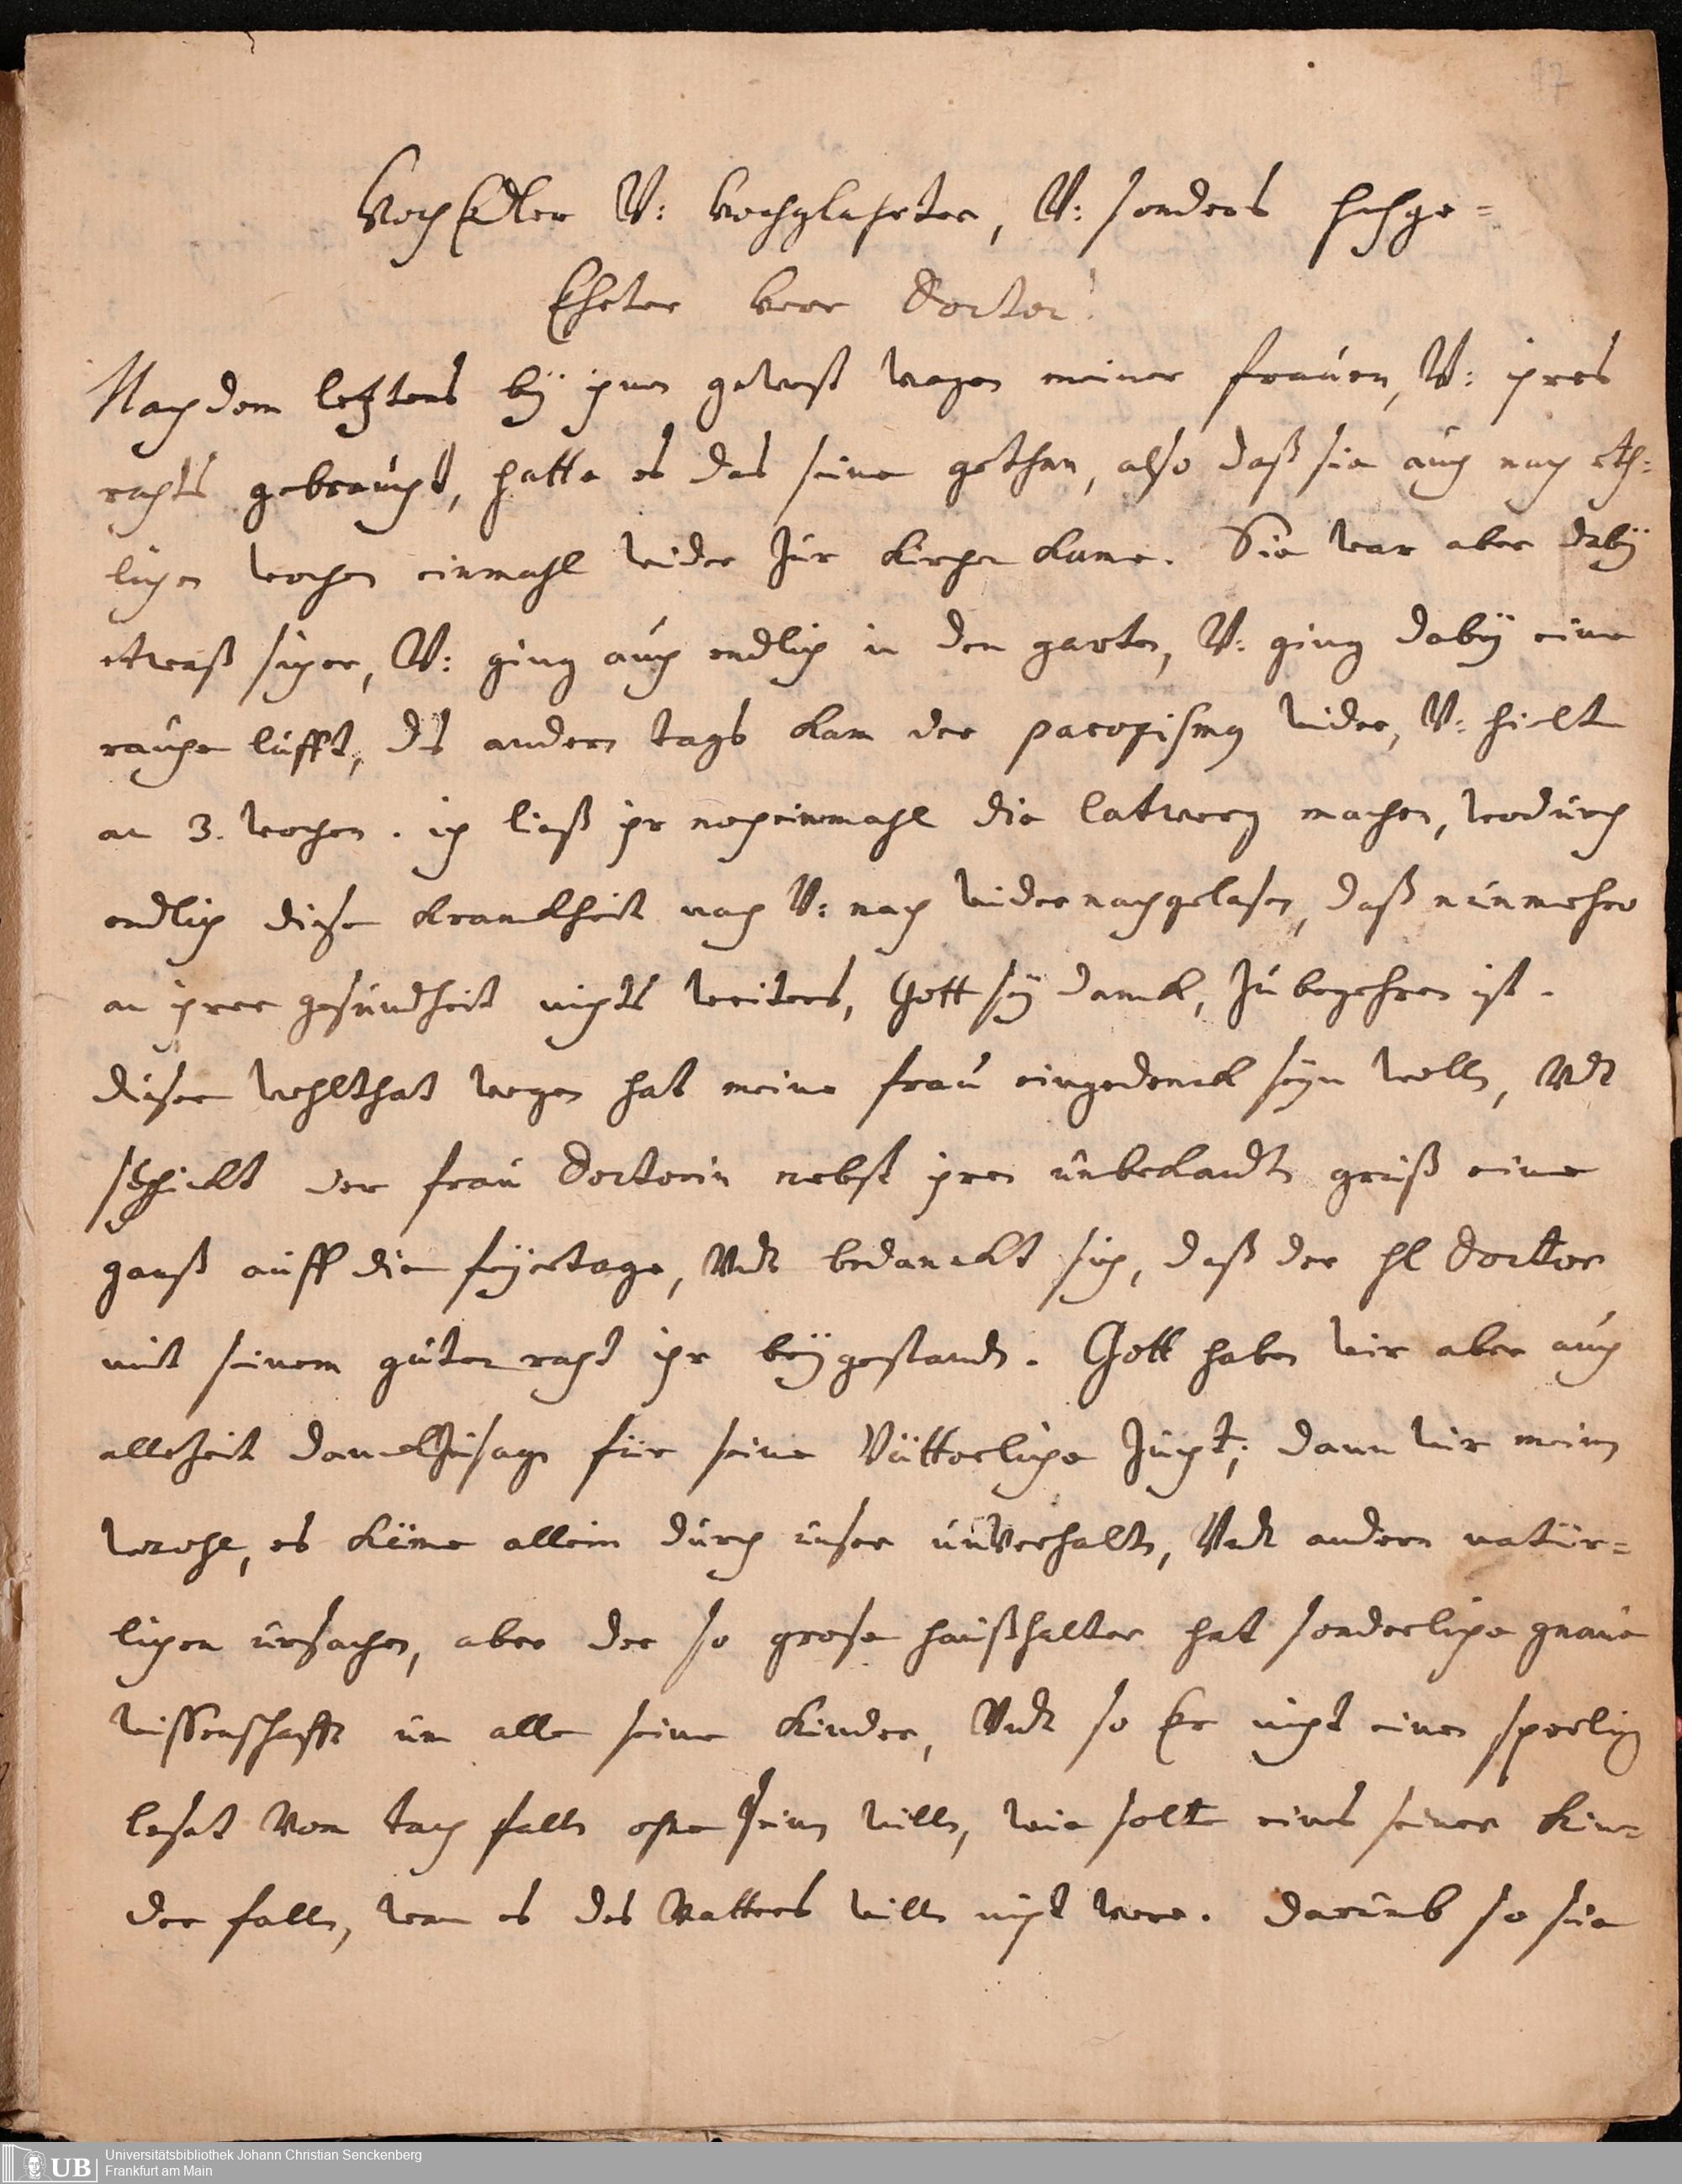 17
HochEdler V: Hochgelahrter, V: sonders hochge=
Ehrter Herr Doctor!
Nachdem letztens bÿ ihnen gewest wegen meiner frauen, V: ihres
rahts gebraucht, hatte es das seine gethan, also daß sie auch nach etz=
lichen wochen einmahl wider zur kirchen kame. Sie war aber dabÿ
etwaß sicher, V: ging auch endlich in den garten, V: ging dabÿ eine
rauhe lufft, des andern tags kam der paroxismus wider, V: hielte
an 3. wochen. ich ließ ihr nocheinmahl die latwerg machen, wodurch
endlich diese kranckheit nach V: nach wider nachgelasen, daß nunmehro
an ihrer gesundheit nichts weiters, Gott sÿ danck, zubegehren ist.
diser wohlthat wegen hat meine frau eingedenck seyn wollen, Vndt
schickt der frau Doctorin nebst ihren unbekandten gruß eine
ganß auff die feÿertage, Vndt bedanckt sich, daß der hl Doctor
mit seinem guten raht ihr beÿgestanden. Gott haben wir aber auch
allezeit danckzusagen für seine Vätterliche Zucht; dann wir meinen
wohl, es käme allein durch unser unVerhalten, Vndt andern natür=
lichen ursachen, aber der so grose haußhalter hat sonderliche gnaue
wissenschafft um alle seine kinder, Vndt so Er nicht einen sperling
leset Vom tach fallen ohne seinen willen, wie solte eines seiner kin=
der fallen, wan es des Vatters willen nicht were. Darumb so sie
Universitätsbibliothek Johann Christian Senckenberg
UB Frankfurt am Main